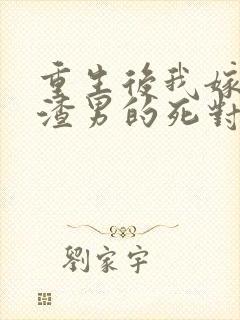 重生後我嫁
渣男的死對
劉家宇